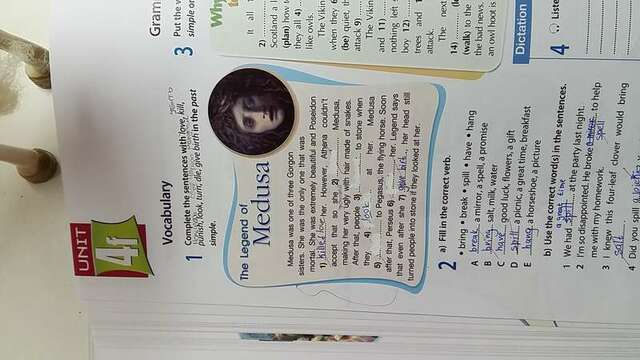 UNIT
4f
Vocabulary
1 Complete the sentences with love, kill,
punish, look, turn, die, give birth in the past
simple.
The Legend of
Medusa
Medusa was one of three Gorgon
sisters. She was the only one that was
mortal. She was extremely beautiful and Poseidon
1) killed her. However, Athena couldn't
accept that so she 2) Medusa,
making her very ugly with hair made of snakes.
After that, people 3) to stone when
they 4) look at her. Medusa
5) Pegasus, the flying horse. Soon
after that, Perseus 6) her. Legend says
that even after she 7) her head still
turned people into stone if they looked at her.
2 a) Fill in the correct verb.
• bring • break • spill • have • hang
A break a mirror, a spell, a promise
B bring salt, milk, water
C have good luck, flowers, a gift
D spill a picnic, a great time, breakfast
E hang a horseshoe, a picture
b) Use the correct word(s) in the sentences.
1 We had at the party last night.
2 I'm so disappointed. He broke to help
me with my homework. spell
3 I knew this four-leaf clover would bring
salt
4 Did you
Gram
3 Put the v
simple or
Why
It all
2)
Scotland a
(plan) how t
they all 4)
like owls.
The Vikin
when they 6
(be) quiet, th
attack 9)
The Vikin
and 11)
nothing left
boy 12)
trees and 1
attack.
The next
14)
(walk) to the
the bad news.
an owl hoot is
Dictation
4 Listen